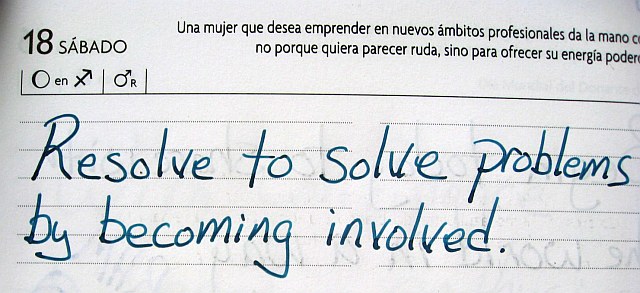 18 SÁBADO
Una mujer que desea emprender en nuevos ámbitos profesionales da la mano
no porque quiera parecer ruda, sino para ofrecer su energía
en ♐ ♂R
Resolve to solve problems
by becoming involved.